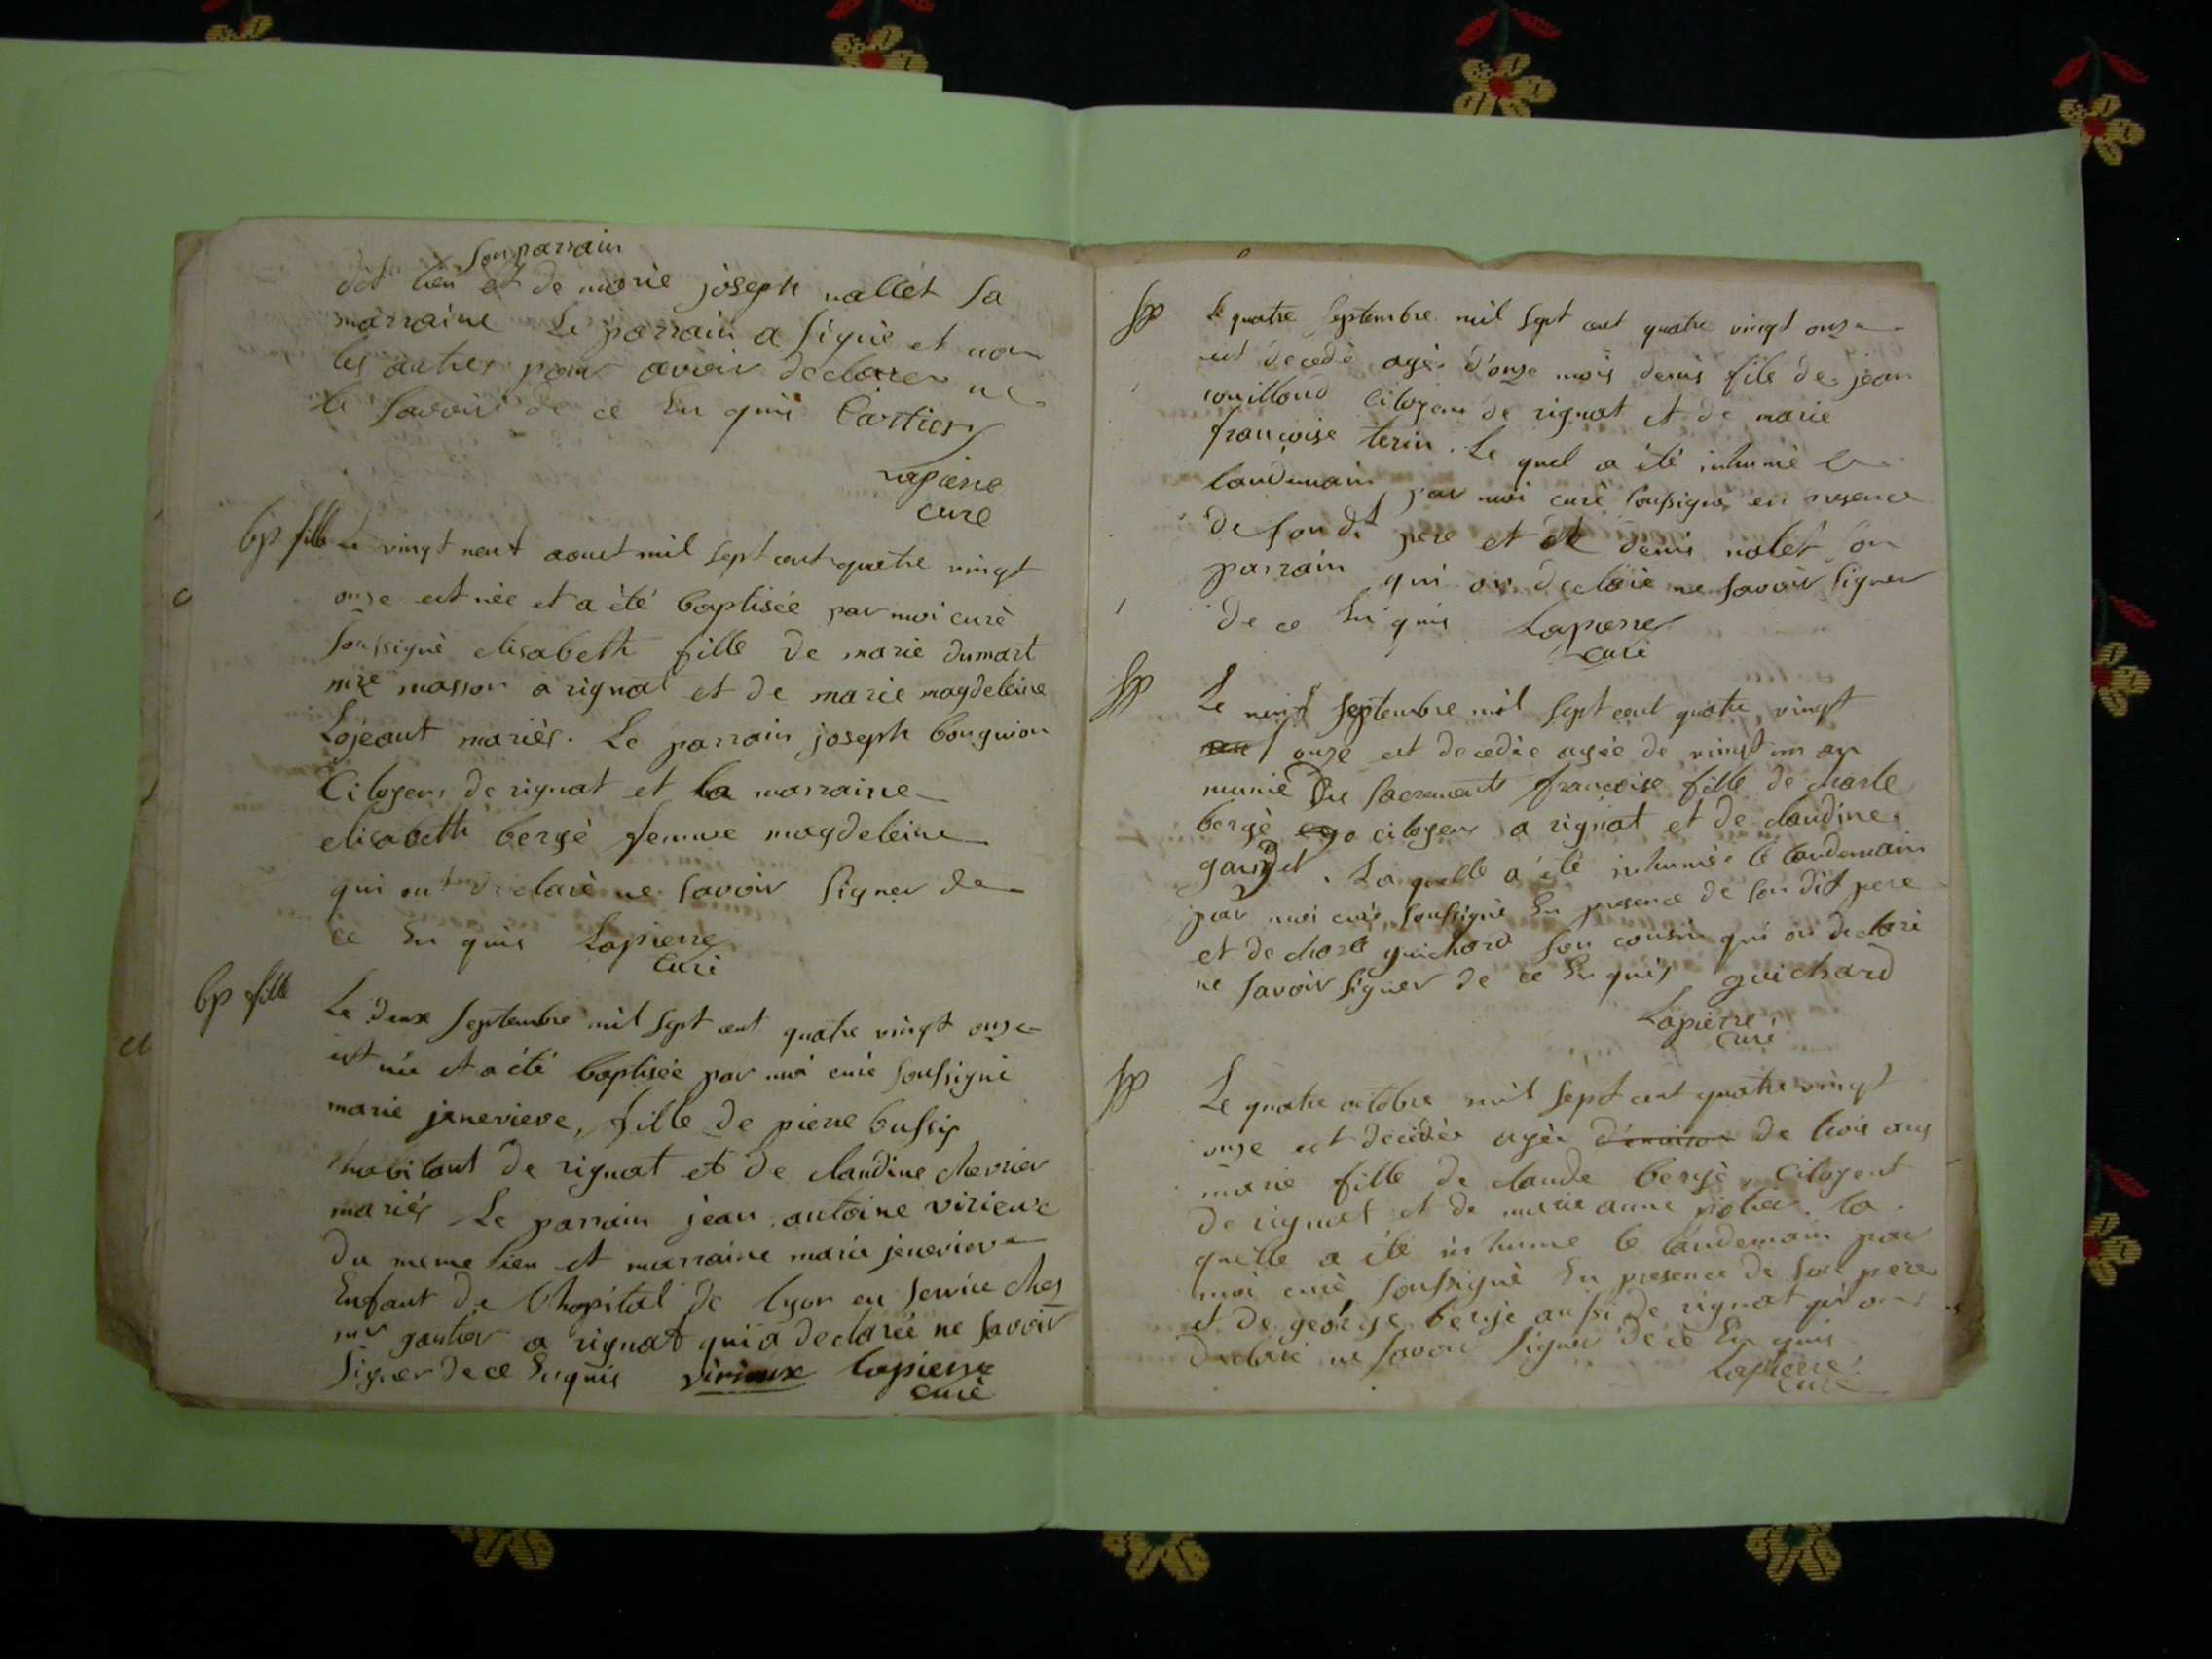 son parrain
dit lieu et de marie joseph nallet sa
marraine Le parrain a signé et non
les autres pour avoir declarer ne
le savoir de ce En quis Cartier
Lapierre
curé
bp fille Le vingt neuf aoust mil sept cent quatre vingt
onze est née et a été baptisée par moi curé
soussigné elisabeth fille de marie dumart
mre masson a rignat et de marie magdeleine
Lojeant mariés. Le parrain joseph bouguion
Citoyens de rignat et la marraine
elisabeth bergé femme magdeleine
qui ont declaré ne savoir signer de
ce En quis Lapierre
curé
bp fille Le deux septembre mil sept cent quatre vingt onze
est née et a été baptisée par moi curé soussigné
marie jenevieve, fille de pierre bussy
habitant de rignat et de claudine chevrier
mariés Le parrain jean antoine virieux
du meme lieu et marraine marie jenevieve
Enfant de l'hopital de lyon en service ches
mr gautier a rignat qui a declarée ne savoir
signer de ce Enquis virieux lapierre
curé
sp Le quatre septembre mil sept cent quatre vingt onze
est decedé agée d'onze mois denis fils de jean
couilloud Citoyens de rignat et de marie
françoise terin. Le quel a été inhumé le
landemain par moi curé soussigné en presence
de son dt pere et de denis nalet son
parrain qui on declaré ne savoir signer
de ce En quis Lapierre
curé
sp Le neuf septembre mil sept cent quatre vingt
onze est decedée agée de vingt un an
munie des sacrements françoise fille de charle
bergé citoyens a rignat et de claudine
gaudet. La quelle a été inhumée le landemain
par moi curé soussigné En presence de son dit pere
et de charle guichard son cousin qui on declaré
ne savoir signer de ce En quis guichard
Lapierre
curé
sp Le quatre octobre mil sept cent quatre vingt
onze est decedée agée de trois ans
marie fille de claude bergé Citoyent
de rignat et de marie anne la
quelle a été inhumé le landemain par
moi curé soussigné En presence de son pere
et de george berge aussi de rignat qui on
declaré ne savoir signer de ce En quis
Lapierre
curé